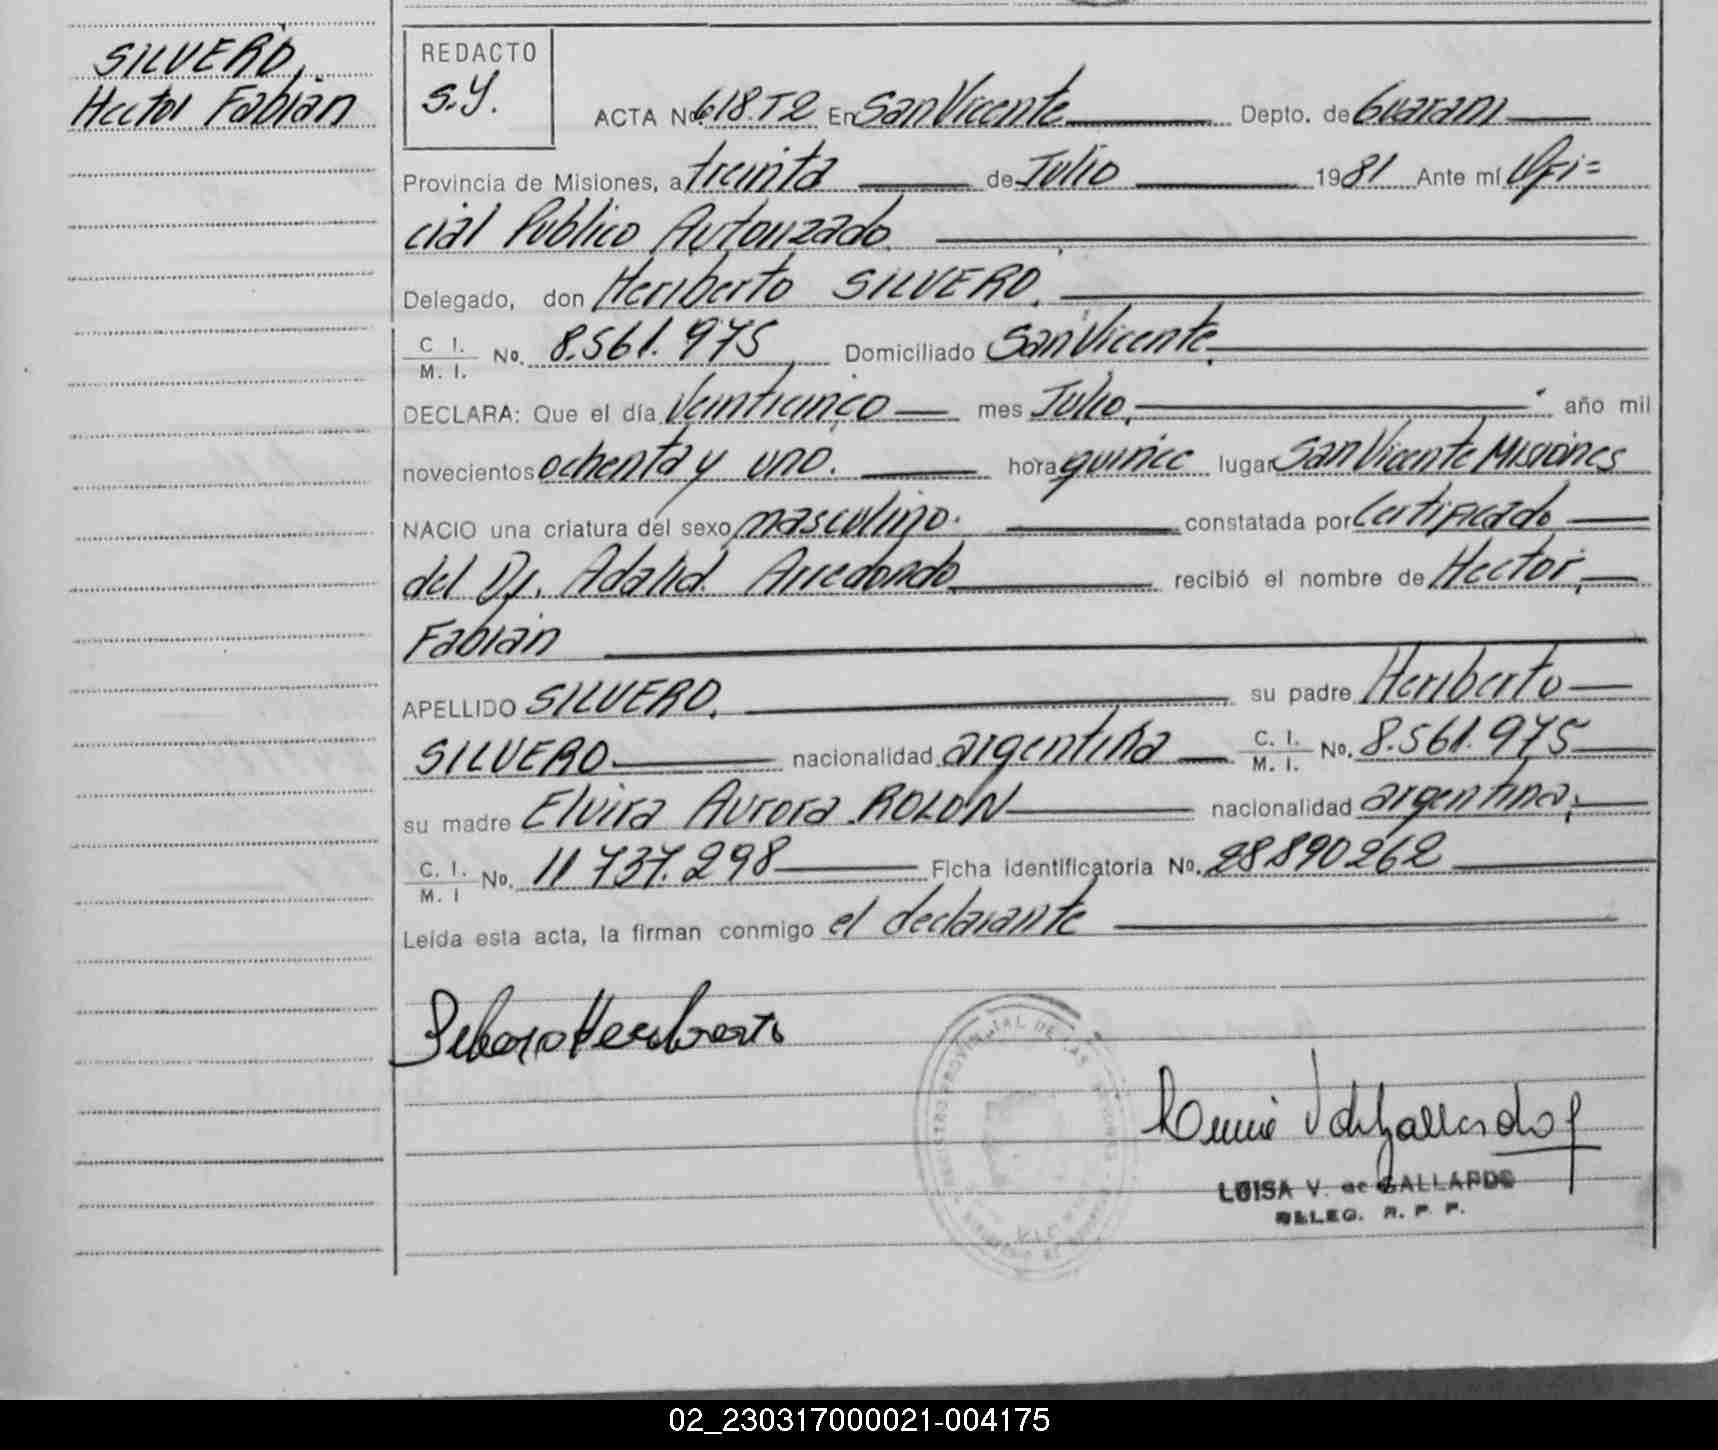 SILVERO,
Hector Fabián
REDACTO
S.Y.
ACTA No. 618.T2 En San Vicente Depto. de Guaraní
Provincia de Misiones, a treinta de Julio 1981 Ante mí Ofi=
cial Público Autorizado
Delegado, don Heriberto SILVERO,
C I. M. I. No. 8.561.975 Domiciliado San Vicente,
DECLARA: Que el día Veinticinco mes Julio, año mil
novecientos ochenta y uno. hora quince lugar San Vicente Misiones
NACIO una criatura del sexo masculino. constatada por Certificado
del Dr. Adalid Arredondo recibió el nombre de Hector,
Fabián
APELLIDO SILVERO, su padre Heriberto
SILVERO nacionalidad argentina C. I. M. I. No. 8.561.975
su madre Elvira Aurora ROLON nacionalidad argentina,
C. I. M. I No. 11 737.298 Ficha identificatoria No. 28890262
Leída esta acta, la firman conmigo el declarante
Silvero Heriberto
V de Gallardo
LUISA V. de GALLARDO
DELEG. R. P. P.
02_230317000021-004175